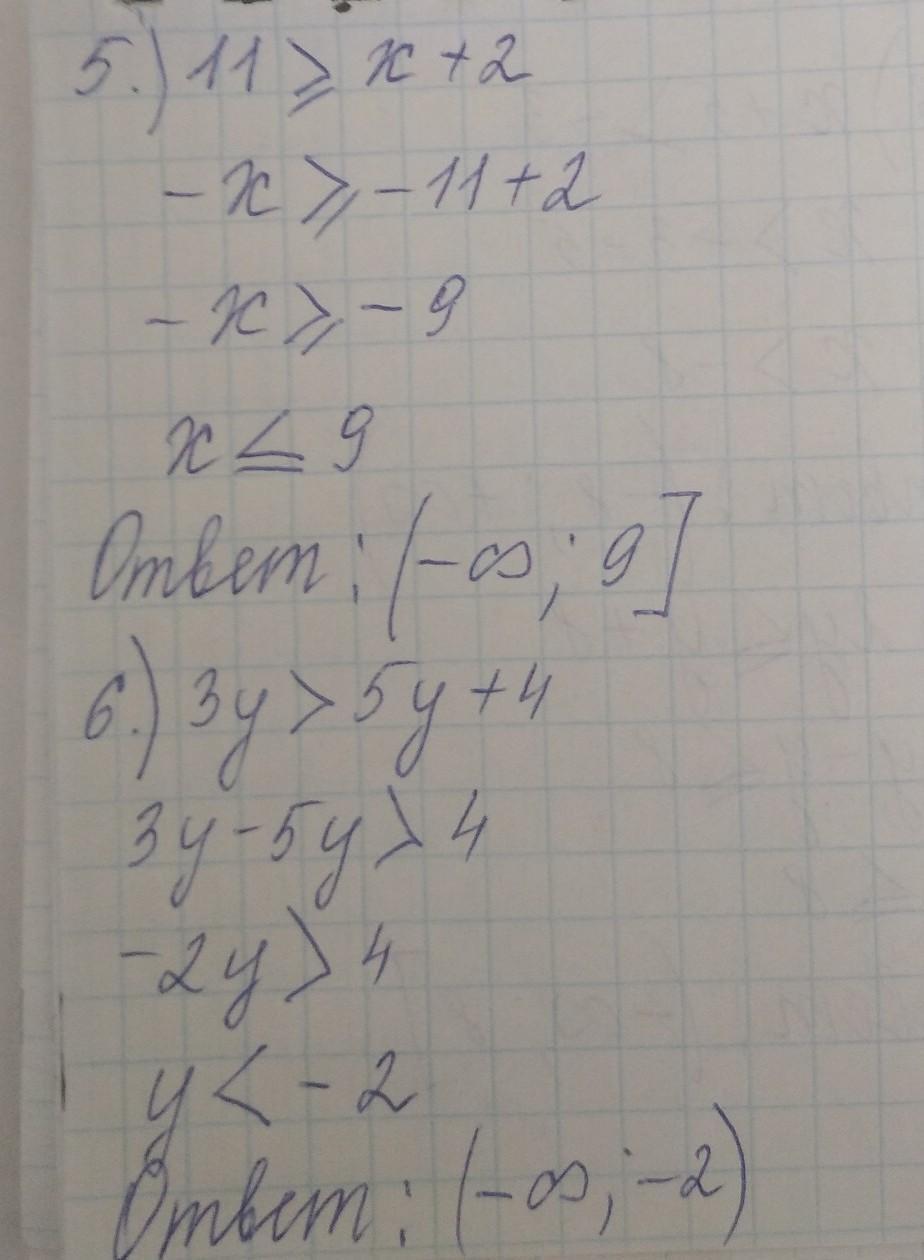 5.) 11 ⩾ x + 2
- x ⩾ - 11 + 2
- x ⩾ - 9
x ≤ 9
Ответ: (-∞; 9]
6.) 3y > 5y + 4
3y - 5y > 4
-2y > 4
y < - 2
Ответ: (-∞; -2)